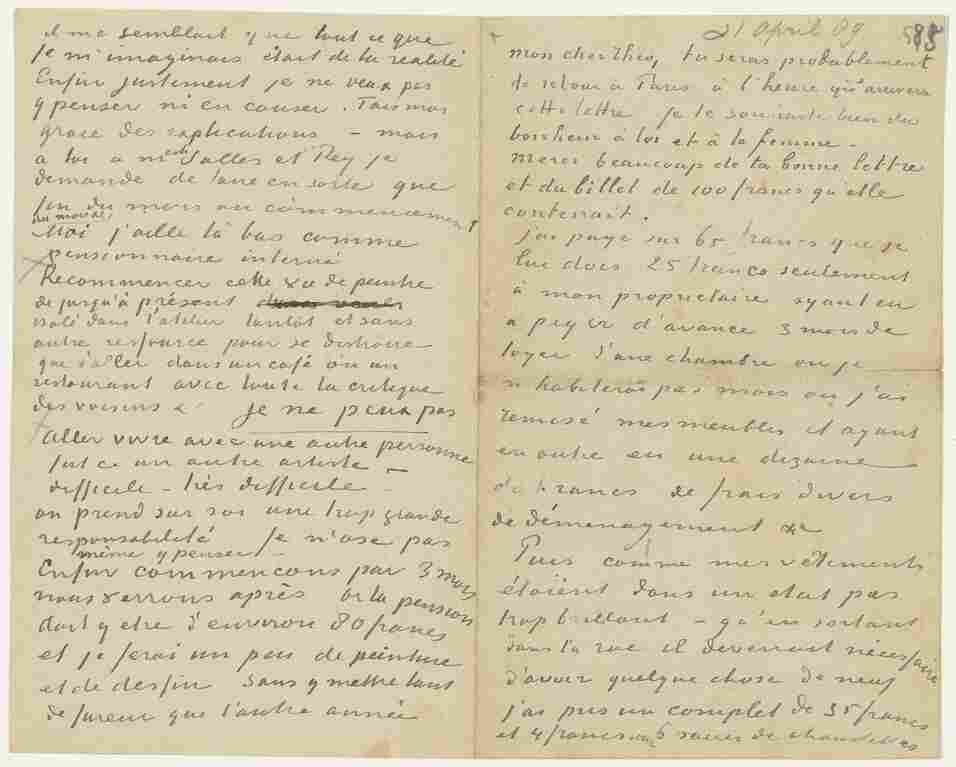 il me semblait que tout ce que
je m'imaginais etait de la realité
Enfin justement je ne veux pas
y penser ni en causer. Fais moi
grace des explications – mais
à toi à Salles et Rey je
demande de faire en sorte que
fin du mois ou commencement
du mois de
Mai j'aille là bas comme
pensionnaire interné
Recommencer cette vie de peintre
de jusqu'à présent
isolé dans l'atelier tantôt et sans
autre ressource pour se distraire
que d'aller dans un café ou un
restaurant avec toute la critique
des voisins &c je ne peux pas
aller vivre avec une autre personne
fut ce un autre artiste –
difficile – très difficile –
on prend sur soi une trop grande
responsabilité Je n'ose pas
même y penser –
Enfin commencons par 3 mois
nous verrons après or la pension
doit y etre d'environ 80 francs
et je ferai un peu de peinture
et de dessin Sans y mettre tant
de fureur que l'autre année
21 April 89 585
mon cher Theo, tu seras probablement
de retour à Paris à l'heure qu'arrivera
cette lettre je te souhaite bien du
bonheur à toi et à ta femme –
merci beaucoup de ta bonne lettre
et du billet de 100 francs qu'elle
contenait.
J'ai payé sur 65 francs que je
lui dois 25 francs seulement
à mon proprietaire ayant eu
a payer d'avance 3 mois de
loyer d'une chambre ou je
n'habiterai pas mais ou j'ai
remisé mes meubles et ayant
en outre eu une dizaine
de francs de frais divers
de déménagement &c
Puis comme mes vêtements
étaient dans un etat pas
trop brillant – qu'en sortant
dans la rue il devenait nécessaire
d'avoir quelque chose de neuf
j'ai pris un complet de 35 francs
et 4 francs pour 6 paires de chaussettes